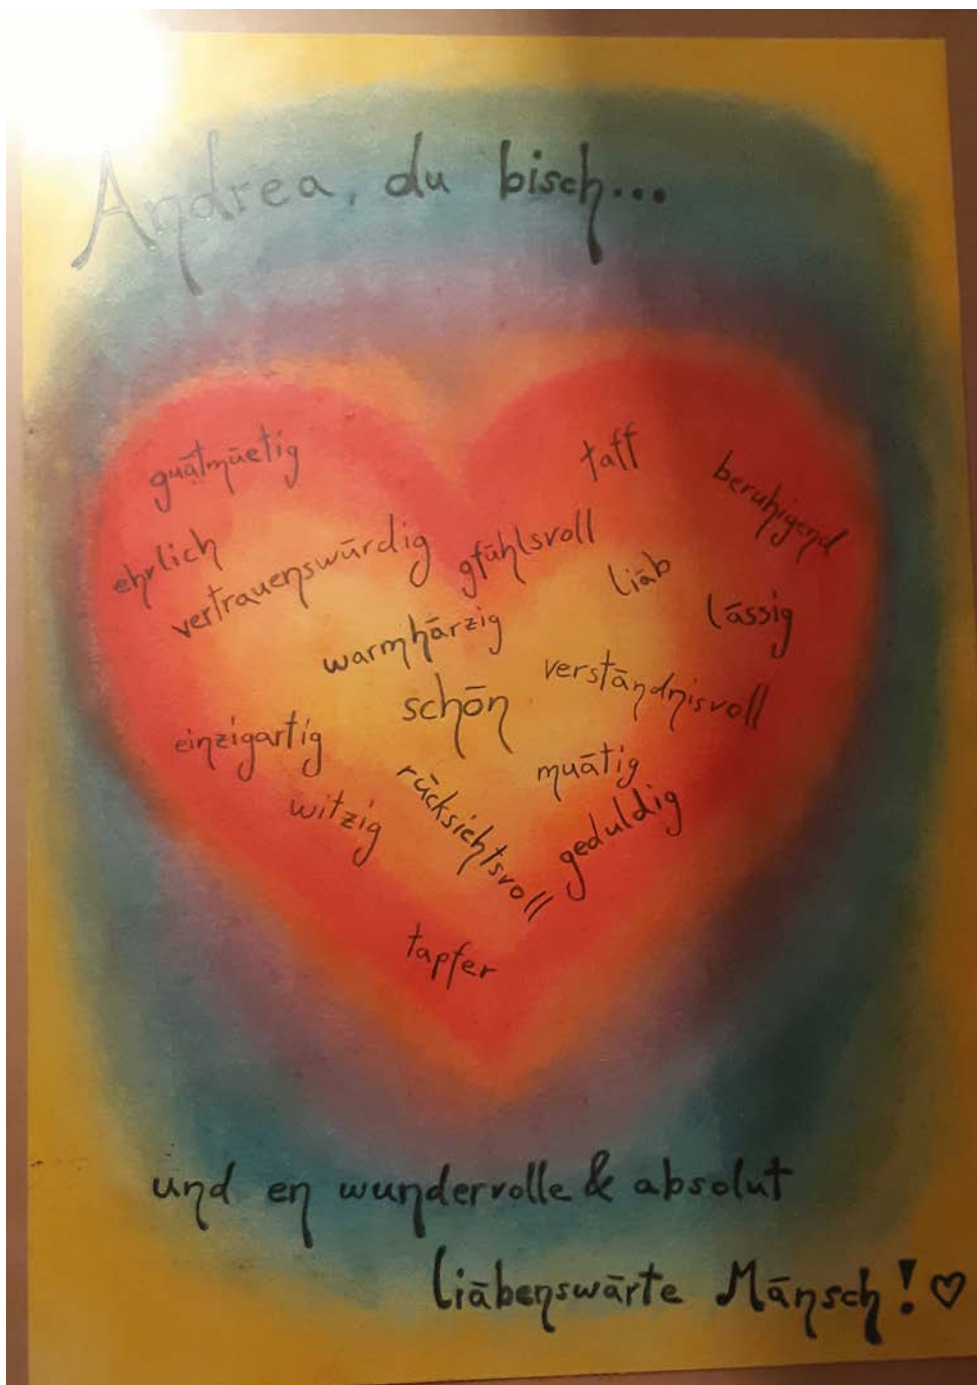 Andrea, du bisch...
guātmüetig
taff
beruhigend
ehrlich
vertrauenswürdig
gfühlsvoll
liāb
lässig
warmhärzig
verständnisvoll
schön
einzigartig
muātig
witzig
rücksichtsvoll
geduldig
tapfer
und en wundervolle & absolut
liābenswärte Mänsch! ♡